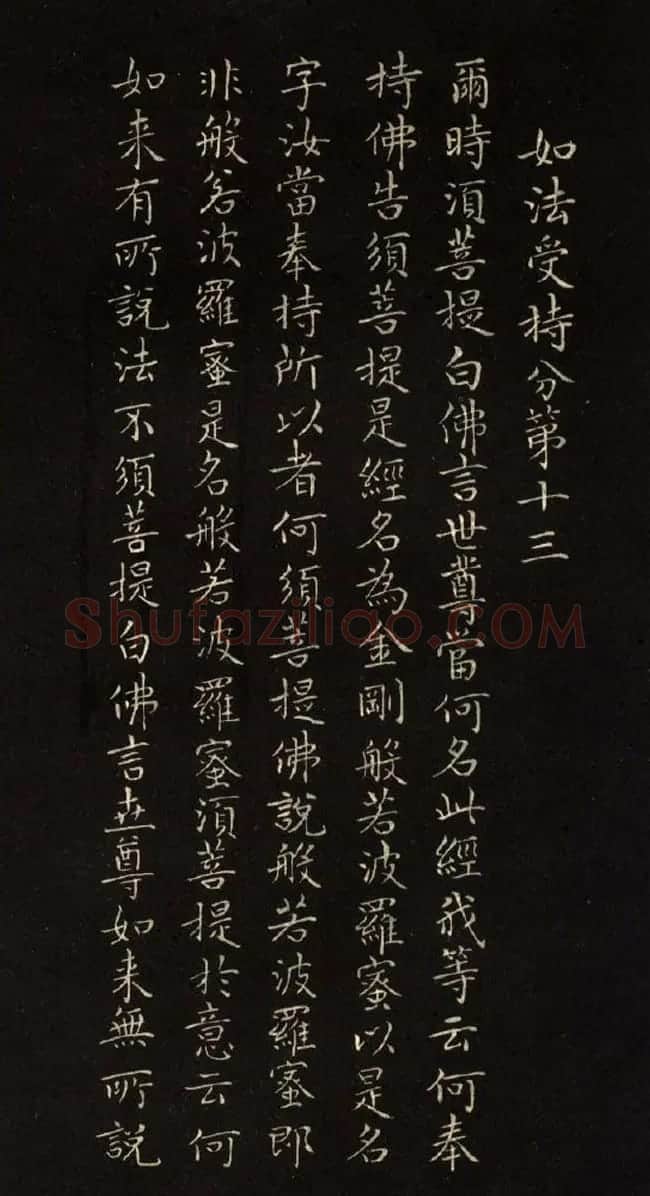 如法受持分第十三
爾時須菩提白佛言世尊當何名此經我等云何奉
持佛告須菩提是經名為金剛般若波羅蜜以是名
字汝當奉持所以者何須菩提佛說般若波羅蜜即
非般若波羅蜜是名般若波羅蜜須菩提於意云何
如来有所說法不須菩提白佛言世尊如来無所說
Shufaziliao.COM